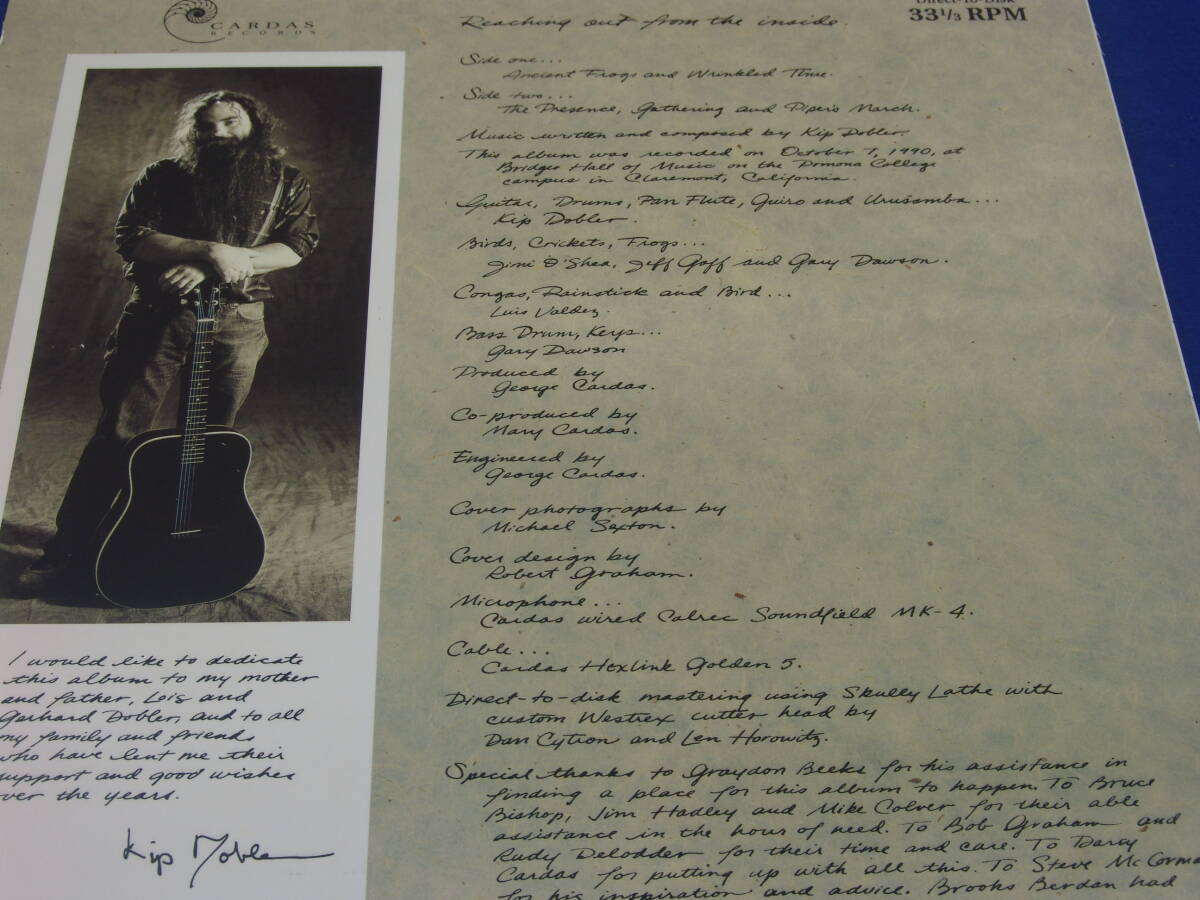 CARDAS
RECORDS
Direct-To-Disk
33⅓ RPM
Reaching out from the inside.
Side one...
Ancient Frogs and Wrinkled Time.
Side two...
The Presence, Gathering and Piper's March.
Music written and composed by Kip Dobler.
This album was recorded on October 7, 1990, at
Bridges Hall of Music on the Pomona College
campus in Claremont, California.
Guitar, Drums, Pan Flute, Guiro and Urusamba...
Kip Dobler.
Birds, Crickets, Frogs...
Jimi O'Shea, Jeff Goff and Gary Dawson.
Congas, Rainstick and Bird...
Luis Valdez.
Bass Drum, Keys...
Gary Dawson
Produced by
George Cardas.
Co-produced by
Mary Cardas.
Engineered by
George Cardas.
Cover photographs by
Michael Sexton.
Cover design by
Robert Graham.
Microphone...
Cardas wired Calrec Soundfield MK-4.
Cable...
Cardas Hexlink Golden 5.
Direct-to-disk mastering using Skully Lathe with
custom Westrex cutter head by
Dan Cytron and Len Horowitz.
Special thanks to Graydon Beeks for his assistance in
finding a place for this album to happen. To Bruce
Bishop, Jim Hadley and Mike Colver for their able
assistance in the hour of need. To Bob Graham and
Rudy Delodder for their time and care. To Darcy
Cardas for putting up with all this. To Steve McCorma
for his inspiration and advice. Brooks Berdan had
I would like to dedicate
this album to my mother
and father, Lois and
Gerhard Dobler, and to all
my family and friends
who have lent me their
support and good wishes
over the years.
Kip Dobler